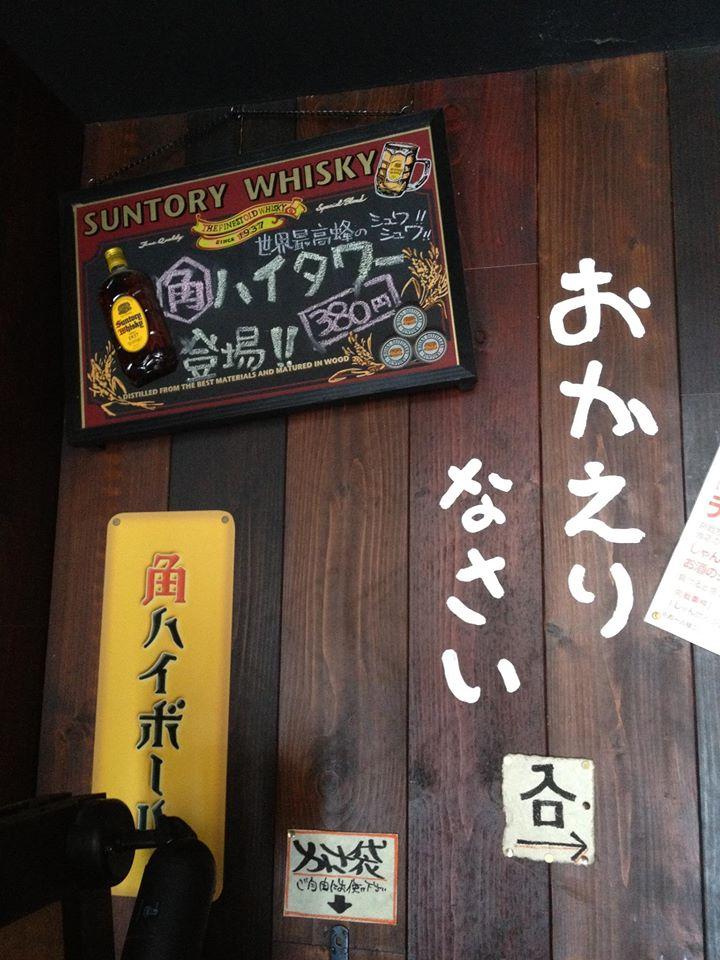 SUNTORY WHISKY
THE FINEST OLD WHISKY
SINCE 1937
Fine Quality
Special Blend
世界最高峰の
シュワ!!
シュワ!!
角ハイタワー
登場!!
380円
Suntory
Whisky
DISTILLED FROM THE BEST MATERIALS AND MATURED IN WOOD
おかえり
なさい
角ハイボール
入口
かさ袋
ご自由にお使い下さい
しゃん
お酒の